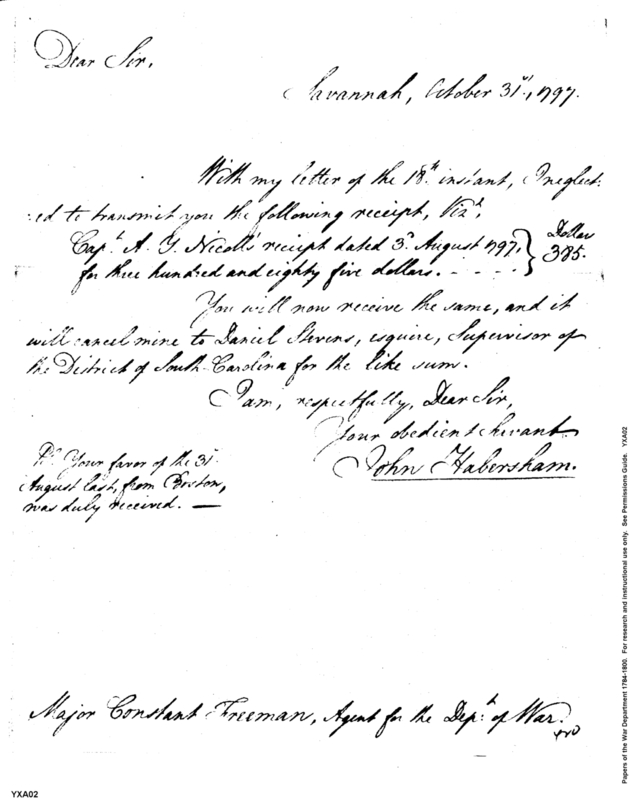 Dear Sir,
Savannah, October 31st, 1797.
With my letter of the 18th instant, I neglect-
ed to transmit you the following receipt, Vizt,
Capt A. Y. Nicoll's receipt dated 3d August 1797. } Dollars
for three hundred and eighty five dollars. - - - - } 385.
You will now receive the same, and it
will cancel mine to Daniel Stevens, esquire, Supervisor of
the District of South-Carolina for the like sum.
I am, respectfully, Dear Sir,
Your obedient Servant
John Habersham.
Ps. Your favor of the 31
August last, from Boston,
was duly received. —
Major Constant Freeman, Agent for the Dept of War.
YXA02
Papers of the War Department 1784-1800. For research and instructional use only. See Permissions Guide. YXA02